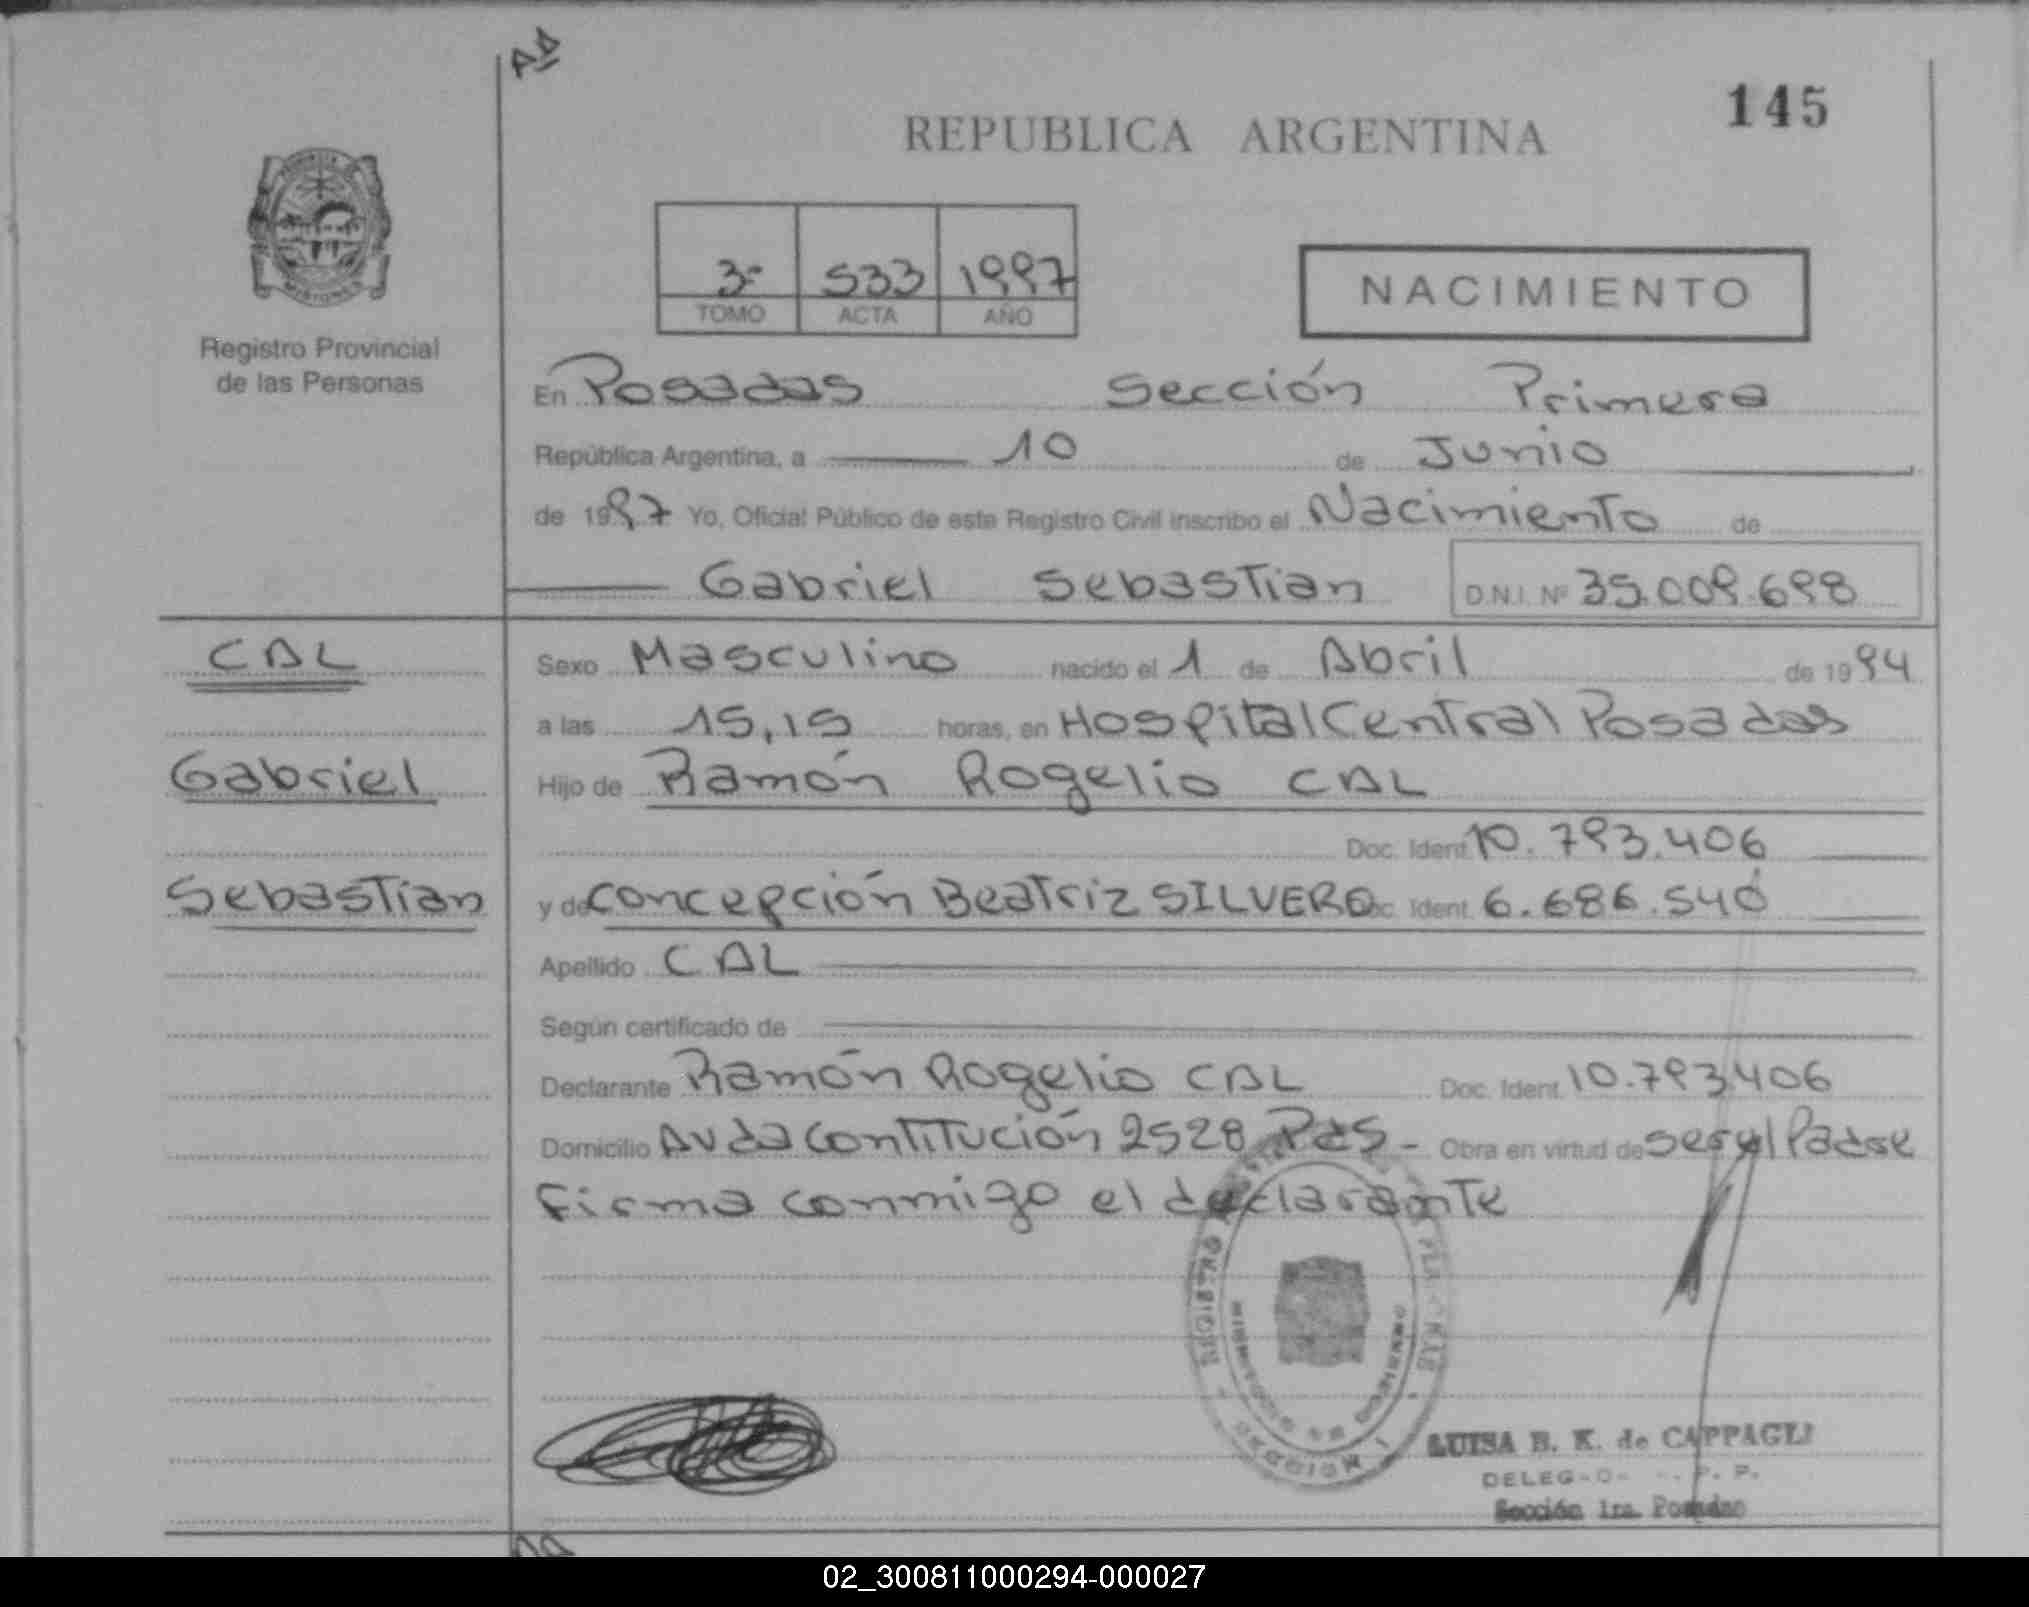 145
REPUBLICA ARGENTINA
MISIONES
Registro Provincial
de las Personas
3º 533 1997
TOMO ACTA AÑO
NACIMIENTO
En Posadas Sección Primera
República Argentina, a 10 de Junio
de 1997 Yo, Oficial Público de este Registro Civil inscribo el Nacimiento de
Gabriel Sebastian D.N.I. Nº 35.009.698
CAL
Sexo Masculino nacido el 1 de Abril de 1994
a las 15,15 horas, en Hospital Central Posadas
Gabriel
Hijo de Ramón Rogelio CAL
Doc. Ident. 10.793.406
Sebastian
y de Concepción Beatriz SILVERO Doc. Ident. 6.686.540
Apellido CAL
Según certificado de
Declarante Ramón Rogelio CAL Doc. Ident. 10.793.406
Domicilio Avda Contitución 2528 Pdas - Obra en virtud de ser el Padre
Firma conmigo el declarante
REGISTRO
SECCION 1
LUISA B. K. de CAPPAGLI
Sección 1ra. Posadas
02_300811000294-000027